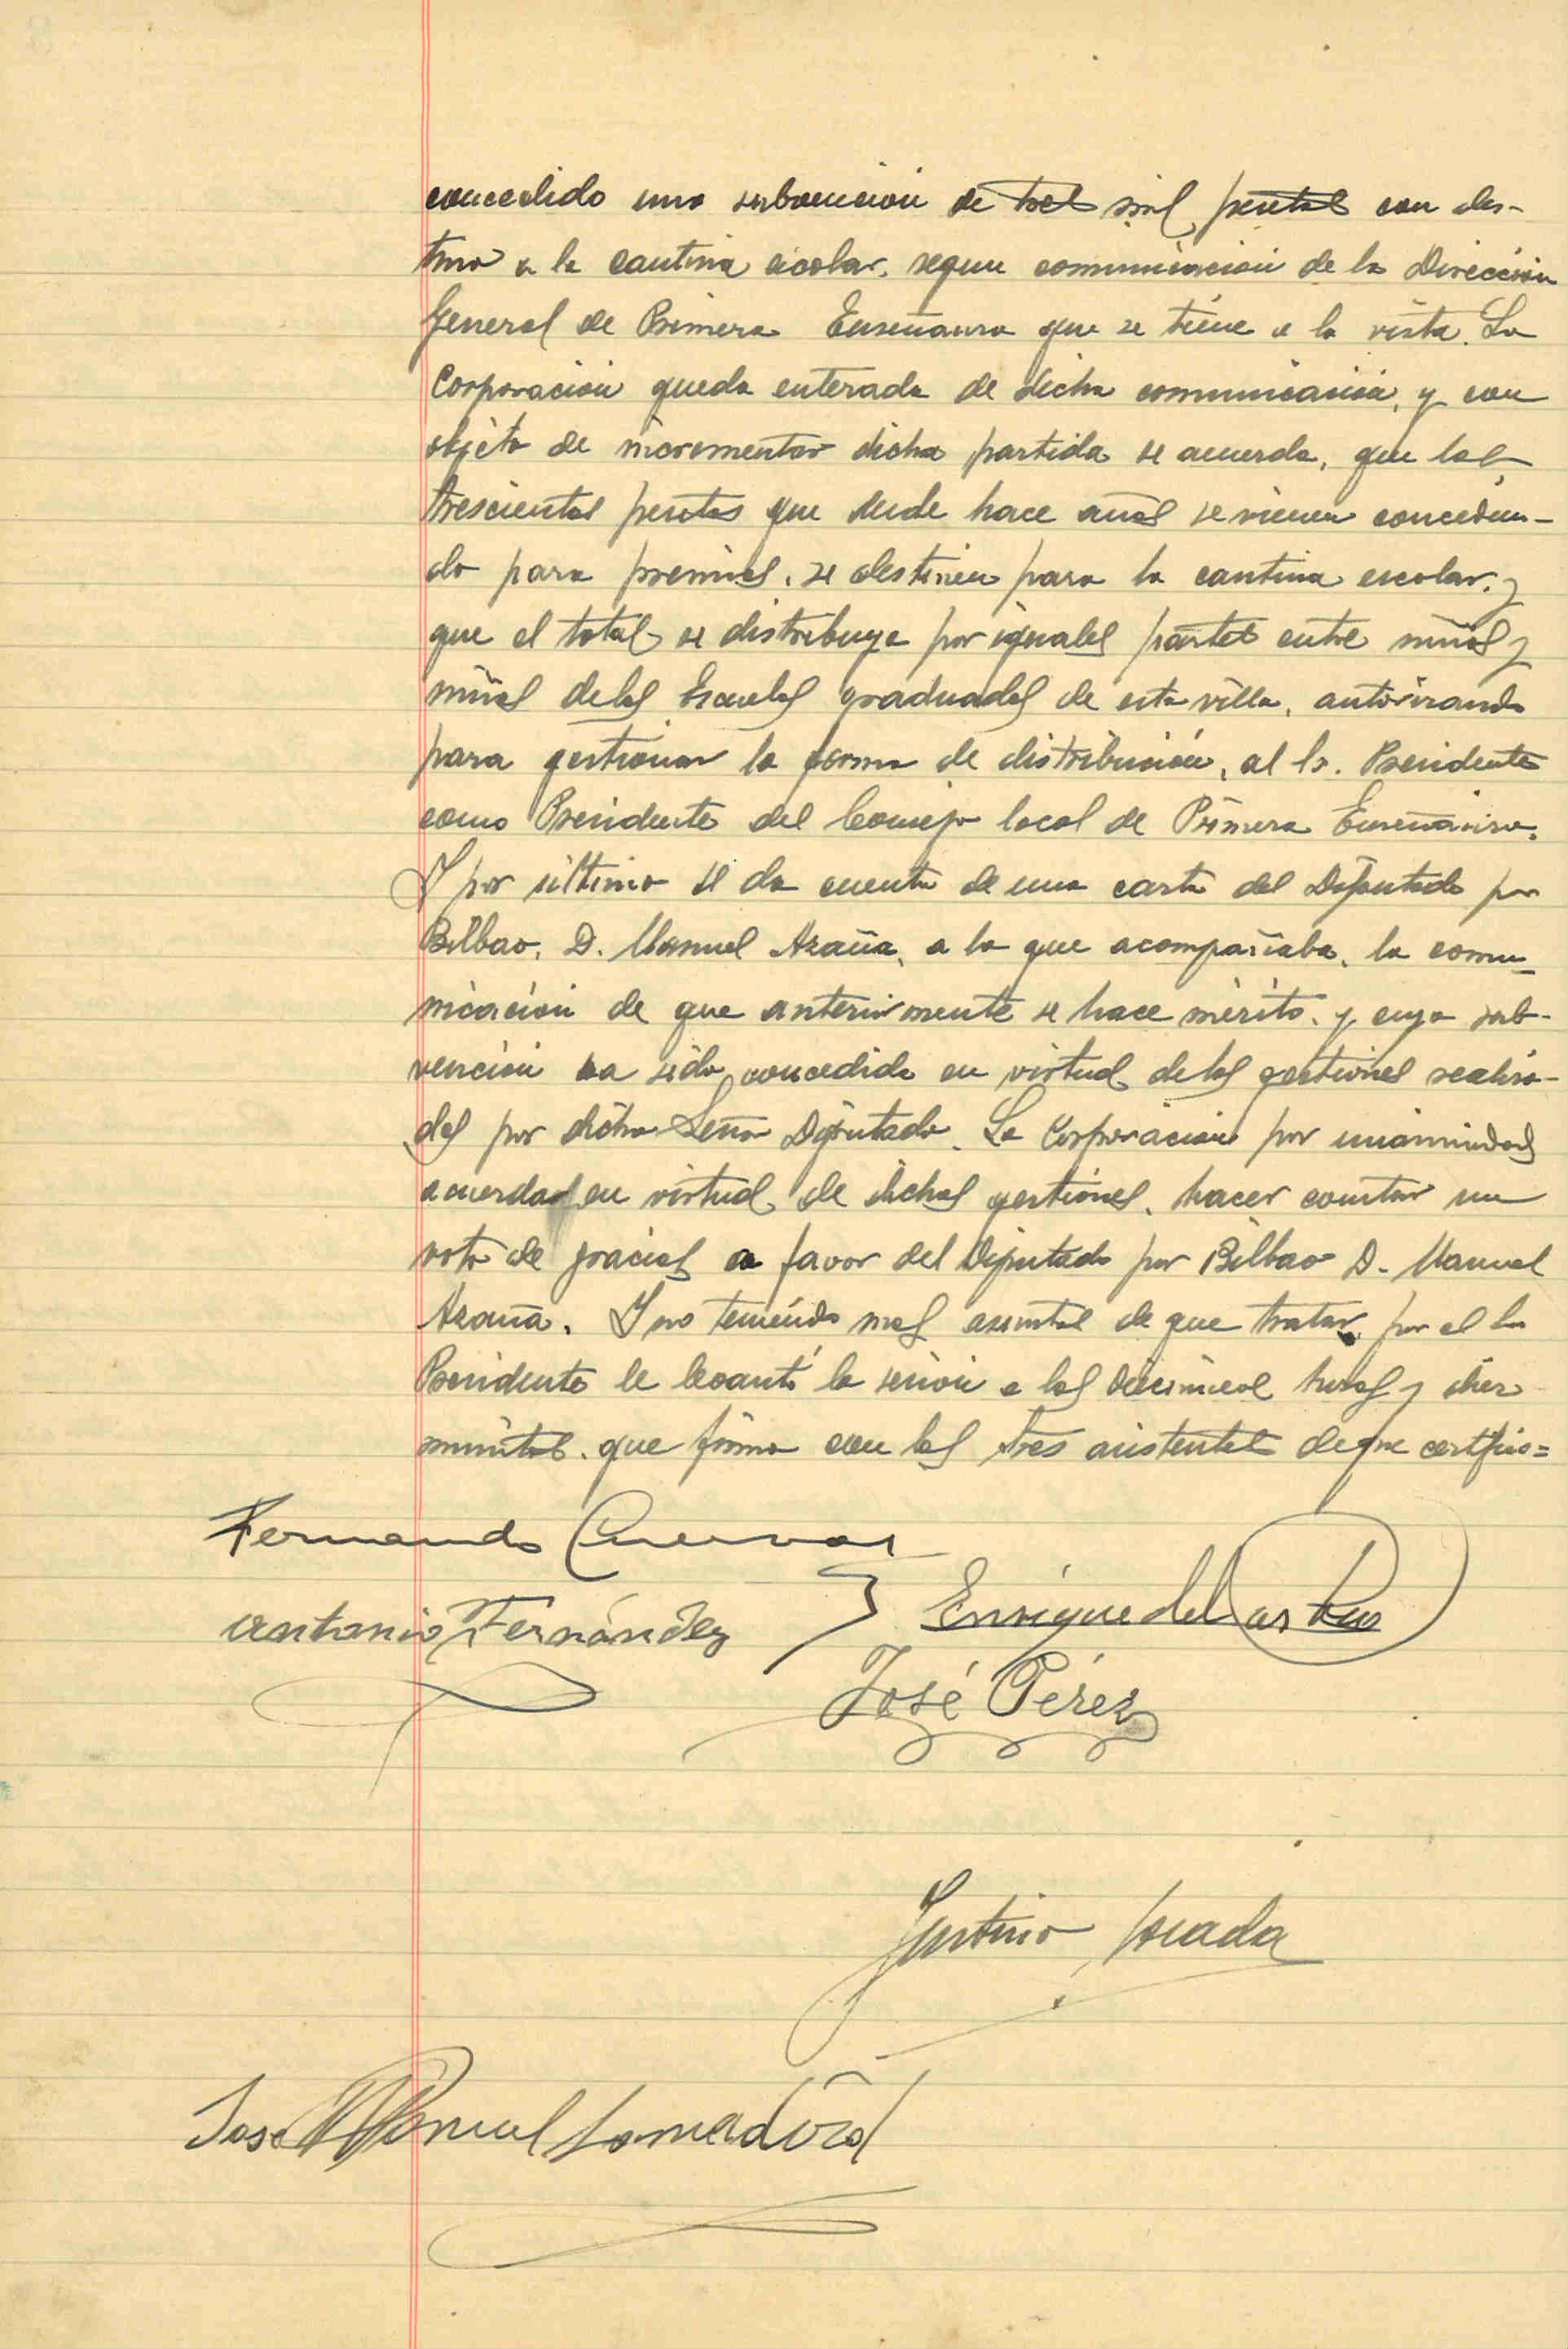 concedido una subvencion de tres mil pesetas con des-
tino a la cantina escolar, segun comunicacion de la Dirección
General de Primera Enseñanza que se tiene a la vista. La
Corporacion queda enterada de dicha comunicacion, y con
objeto de incrementar dicha partida se acuerda, que las
trescientas pesetas que desde hace años se vienen concedien-
do para premios, se destinen para la cantina escolar, y
que el total se distribuya por iguales partes entre niños y
niñas de las Escuelas graduadas de esta villa, autorizando
para gestionar la forma de distribución, al Sr. Presidente
como Presidente del Consejo local de Primera Enseñanza.
Y por último se da cuenta de una carta del Diputado por
Bilbao, D. Manuel Azaña, a la que acompañaba, la comu-
nicación de que anteriormente se hace mérito, y cuya sub-
vencion ha sido concedida en virtud de las gestiones realiza-
das por dicho Señor Diputado. La Corporacion por unanimidad
acuerda en virtud de dichas gestiones, hacer constar un
voto de gracias a favor del Diputado por Bilbao D. Manuel
Azaña. Y no teniendo mas asuntos de que tratar, por el Sr
Presidente se levantó la sesion a las diecinueve horas y diez
minutos, que firma con los tres asistentes de que certifico=
Fernando Cuervas
Antonio Fernández
Enrique del
José Pérez
Justino
José Manuel